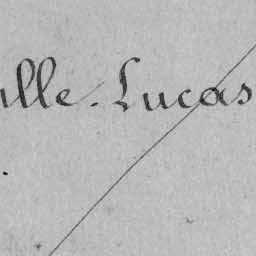 ille. Lucas